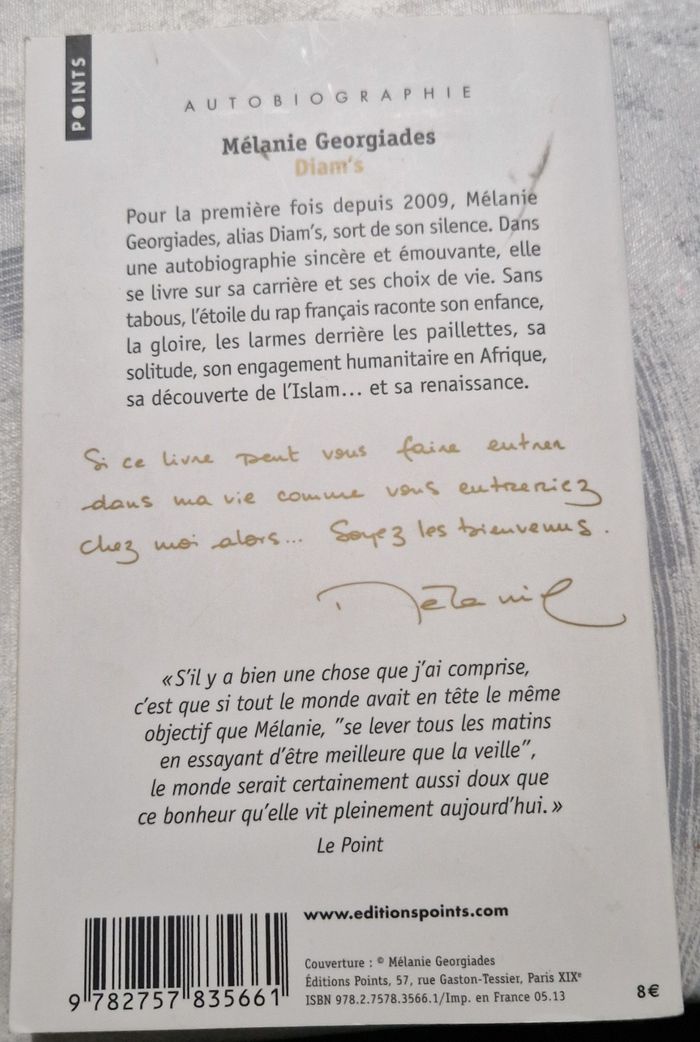 POINTS
AUTOBIOGRAPHIE
Mélanie Georgiades
Diam's
Pour la première fois depuis 2009, Mélanie
Georgiades, alias Diam's, sort de son silence. Dans
une autobiographie sincère et émouvante, elle
se livre sur sa carrière et ses choix de vie. Sans
tabous, l'étoile du rap français raconte son enfance,
la gloire, les larmes derrière les paillettes, sa
solitude, son engagement humanitaire en Afrique,
sa découverte de l'Islam... et sa renaissance.
Si ce livre peut vous faire entrer
dans ma vie comme vous entreriez
chez moi alors... Soyez les bienvenus.
Mélanie
« S'il y a bien une chose que j'ai comprise,
c'est que si tout le monde avait en tête le même
objectif que Mélanie, "se lever tous les matins
en essayant d'être meilleure que la veille",
le monde serait certainement aussi doux que
ce bonheur qu'elle vit pleinement aujourd'hui. »
Le Point
www.editionspoints.com
Couverture : © Mélanie Georgiades
Éditions Points, 57, rue Gaston-Tessier, Paris XIXe
ISBN 978.2.7578.3566.1/Imp. en France 05.13
8€
9 782757 835661